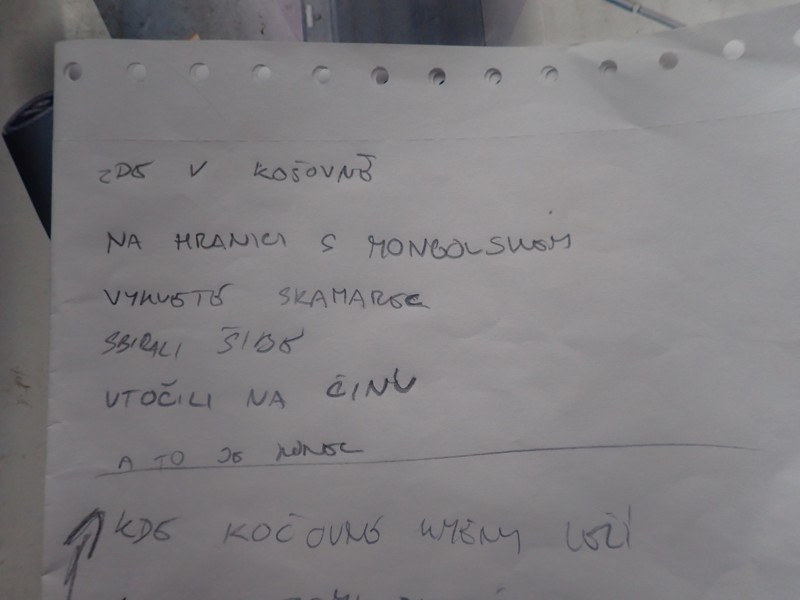 ZDE V KOŠOVNĚ
NA HRANICI S MONGOLSKEM
VYKVETÉ SKAMAREC
SBIRALI ŠIDÉ
UTOČILI NA ČINU
A TO JE KONEC
KDE KOČOVNÉ KMENY LEŽÍ